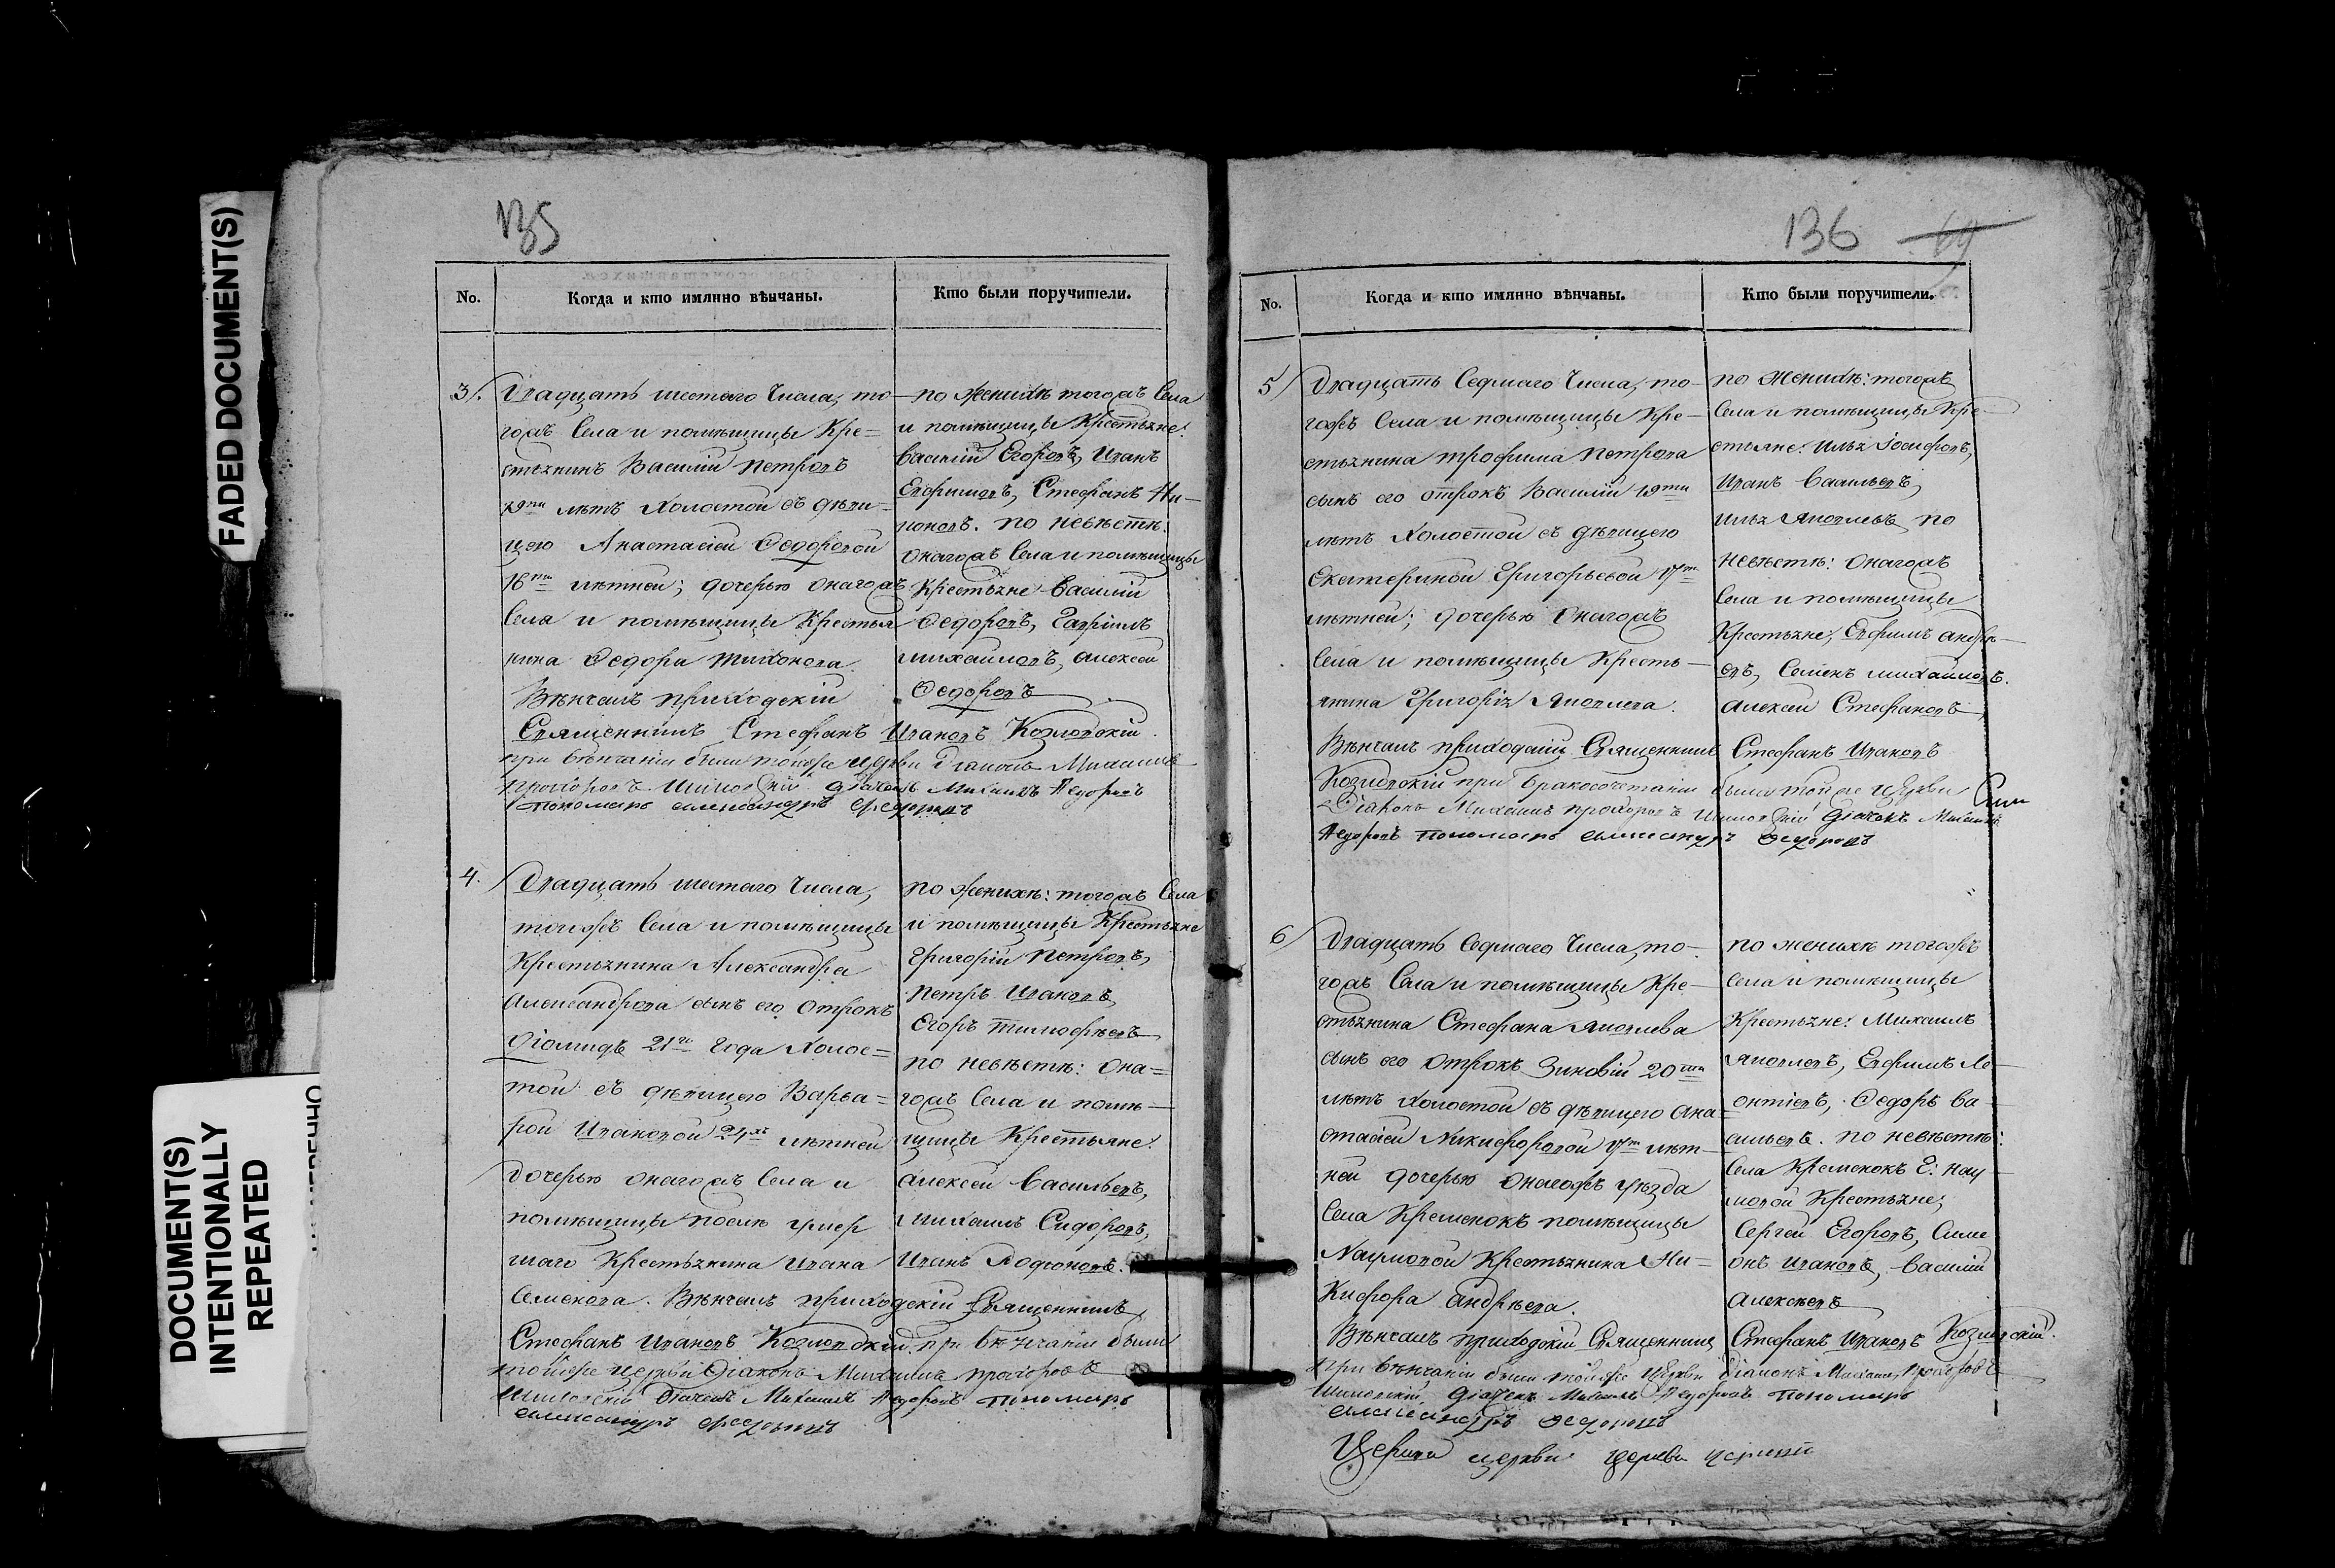 FADED DOCUMENT(S)
DOCUMENT(S)
INTENTIONALLY
REPEATED
135
No.
Когда и кто имянно вѣнчаны.
Кто были поручители.
3.
Двадцать шестаго Числа, то-
гожъ Села и помѣщицы Кре=
стьянинъ Василій Петровъ
19ти лѣтъ Холостой съ дѣви-
цею Анастасіей Ѳедоровой
18ти лѣтней; дочерью онагожъ
Села и помѣщицы Крестья
нина Ѳедора Тихонова.
Вѣнчалъ приходскій
Священникъ Стефанъ Ивановъ Козловскій.
при вѣнчаніи были тойже церкви Діаконъ Михаилъ
Прохоровъ Діачекъ Михаилъ Ѳедоровъ
Пономарь Александръ Ѳедоровъ
по Женихѣ тогожъ Села
и помѣщицы Крестьяне:
Василій Егоровъ, Иванъ
Евфимовъ, Стефанъ Ни-
коновъ. по невѣстѣ:
онагожъ Села и помѣщицы
Крестьяне Василій
Ѳедоровъ, Гавріилъ
Михайловъ, Алексей
Ѳедоровъ
4.
Двадцать шестаго Числа,
тогожъ Села и помѣщицы
Крестьянина Александра
Александрова сынъ его отрокъ
Діомидъ 21го Года Холос=
той съ дѣвицею Варва=
рой Ивановой 24хъ лѣтней
дочерью онагожъ Села и
помѣщицы послѣ умер
шаго Крестьянина Ивана
Семенова. Вѣнчалъ приходскій Священникъ
Стефанъ Ивановъ Козловскій при вѣнчаніи были
тойже церкви Діаконъ Михаилъ Прохоровъ
Діачекъ Михаилъ Ѳедоровъ Пономарь
Александръ Ѳедоровъ
по Женихѣ: тогожъ Села
и помѣщицы Крестьяне
Григорій Петровъ,
Петръ Ивановъ,
Егоръ Тимофѣевъ
по невѣстѣ: она=
гожъ Села и помѣ-
щицы Крестьяне:
Алексей Васильевъ,
Михаилъ Сидоровъ,
Иванъ Родіоновъ.
136
69
No.
Когда и кто имянно вѣнчаны.
Кто были поручители.
5
Двадцать Седмаго Числа, то-
гожъ Села и помѣщицы Кре-
стьянина Трофима Петрова
сынъ его отрокъ Василій 19ти
лѣтъ Холостой съ дѣвицею
Екатериной Григорьевой 17ти
лѣтней; дочерью онагожъ
Села и помѣщицы Кресть-
янина Григорія Яковлева.
Вѣнчалъ приходскій Священникъ Стефанъ Ивановъ
Козловскій при бракосочетаніи были тойже церкви
Діаконъ Михаилъ Прохоровъ Діачекъ Михаилъ
Ѳедоровъ Пономарь Александръ Ѳедоровъ
по Женихѣ: тогожъ
Села и помѣщицы Кре-
стьяне: Илья Іосифовъ,
Иванъ Васильевъ,
Илья Яковлевъ, по
невѣстѣ: онагожъ
Села и помѣщицы
Крестьяне, Евфимъ Андрѣ-
евъ, Семенъ Михайловъ.
Алексей Стефановъ
6
Двадцать Седмаго Числа, то-
гожъ Села и помѣщицы Кре-
стьянина Стефана Яковлева
сынъ его отрокъ Зиновій 20ти
лѣтъ Холостой съ дѣвицею Ана=
стасіей Никифоровой 17ти лѣт-
ней дочерью онагожъ уѣзда
Села Кременокъ помѣщицы
Наумовой Крестьянина Ни=
кифора Андрѣева.
Вѣнчалъ приходскій Священникъ Стефанъ Ивановъ Козловскій.
При вѣнчаніи были тойже Церкви Діаконъ Михаилъ Прохоровъ
Діачекъ Михаилъ Ѳедоровъ Пономарь
Александръ Ѳедоровъ
по женихѣ тогожъ
Села и помѣщицы
Крестьяне: Михаилъ
Яковлевъ, Евфимъ Ле-
онтіевъ, Ѳедоръ Ва-
сильевъ. по невѣстѣ:
Села Кременокъ Г: Нау-
мовой Крестьяне;
Сергей Егоровъ, Симе
онъ Ивановъ, Василій
Алексѣевъ
Церкви церкви церкви церкви